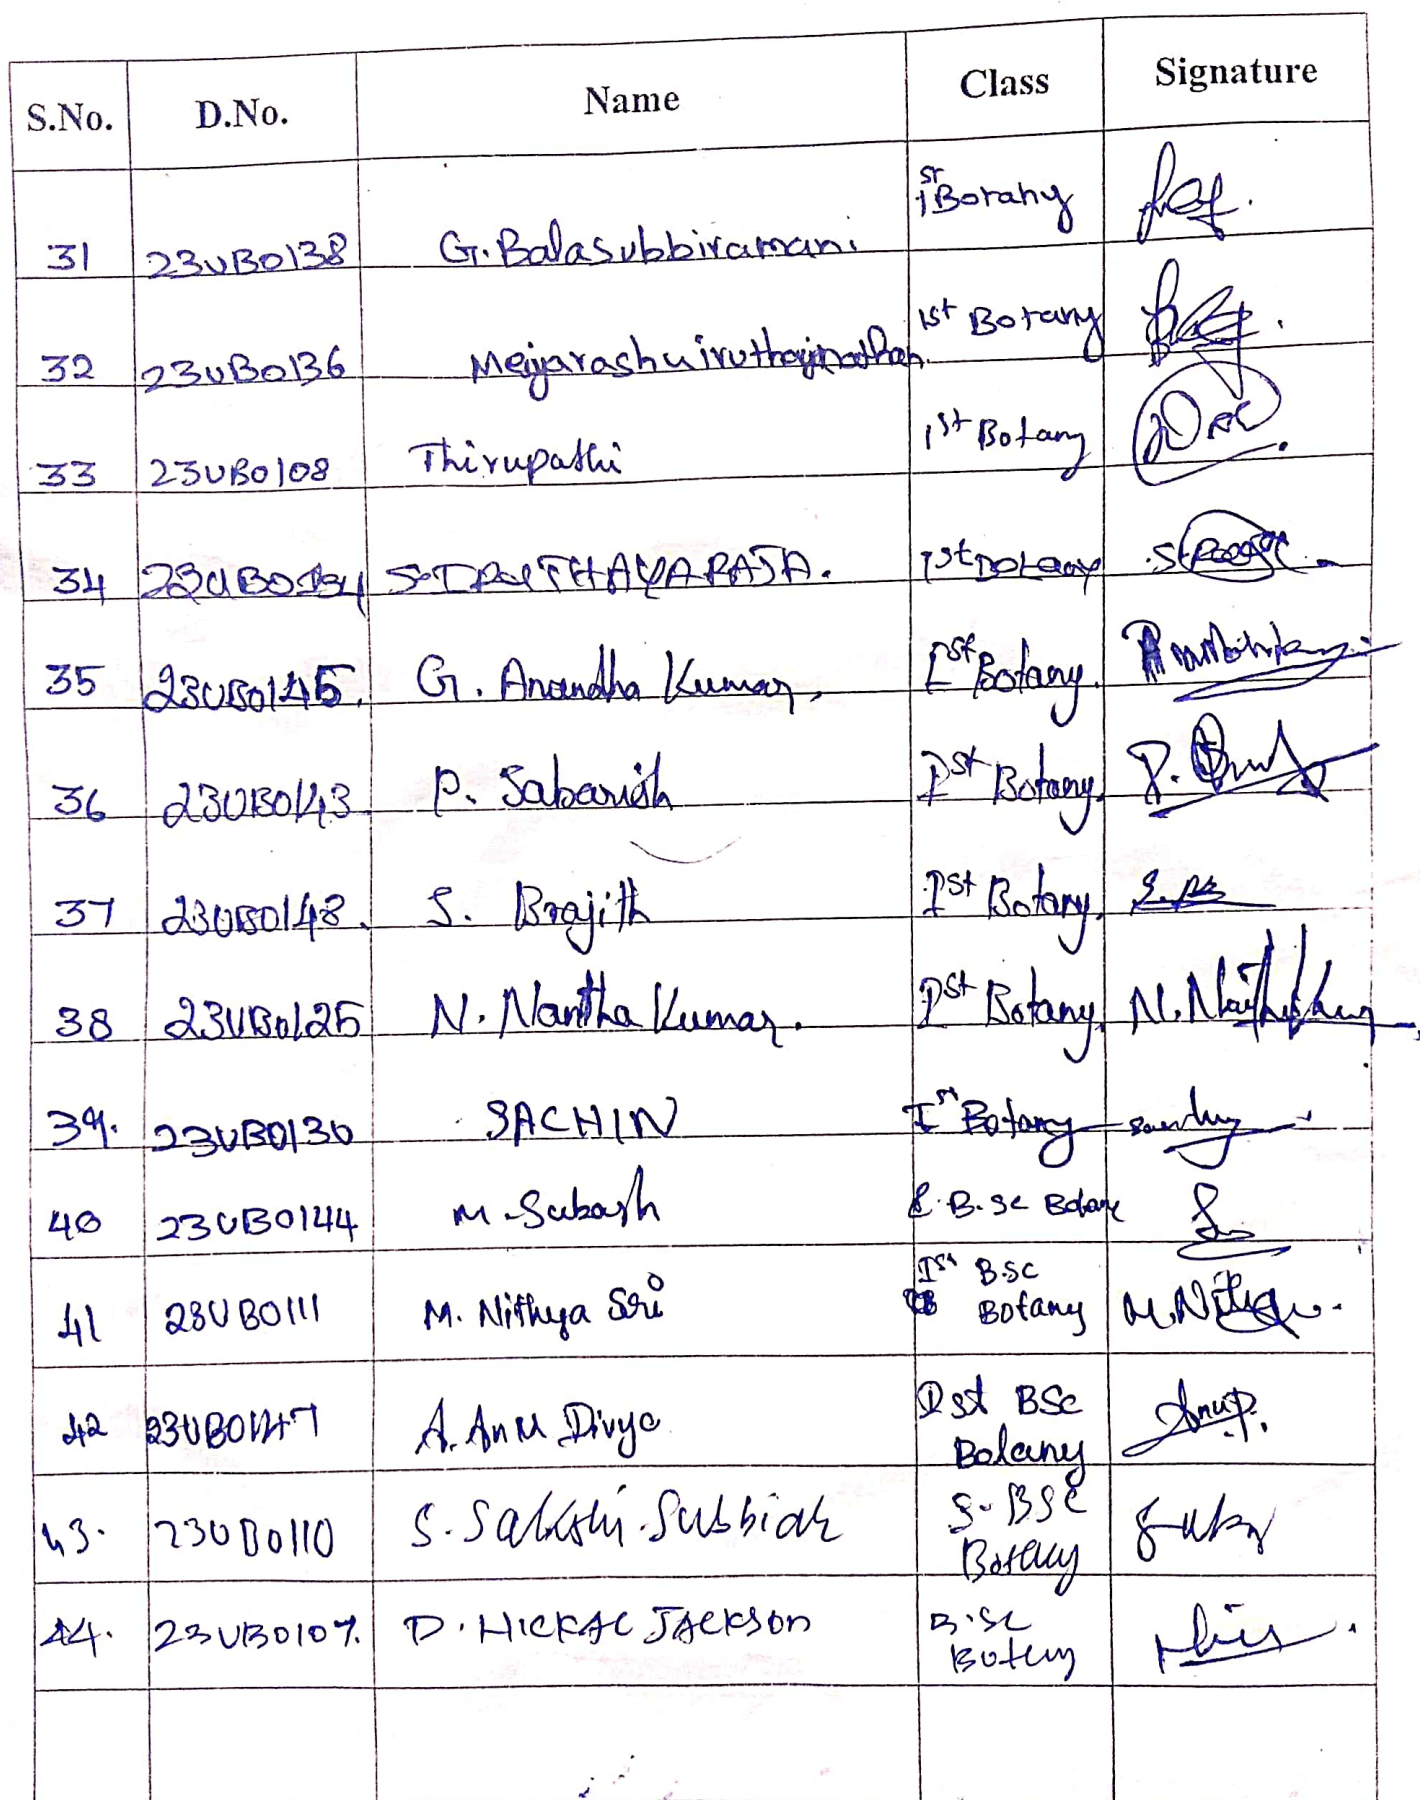 S.No. D.No. Name Class Signature
31 23UBO138 G. Balasubbiramani 1st Botany
32 23UBO136 Meiyarashuiruthayinathan. 1st Botany
33 23UBO108 Thirupathi 1st Botany
34 1st Botany
35 23UBO145. G. Anandha Kumar, Ist Botany.
36 23UBO143 P. Sabarish Ist Botany.
37 23UBO148. S. Brajith Ist Botany.
38 23UBO125 N. Nantha Kumar. Ist Botany.
39. 23UBO130 SACHIN Ist Botany
40 23UBO144 M. Subash B.Sc Botany
41 23UBO111 M. Nithya Sri Ist BSC
Botany
42 23UBO147 A. Anu Divya Ist BSc
Botany
43. 23UBO110 S. Sakshi. Subbiah BSc
Botany
44. 23UBO107. D. JACKSON B.Sc
Botany